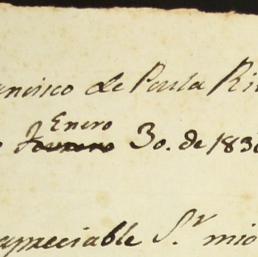 ncisco de Paula Ri
Enero
30. de 183
apreciable S.r mio